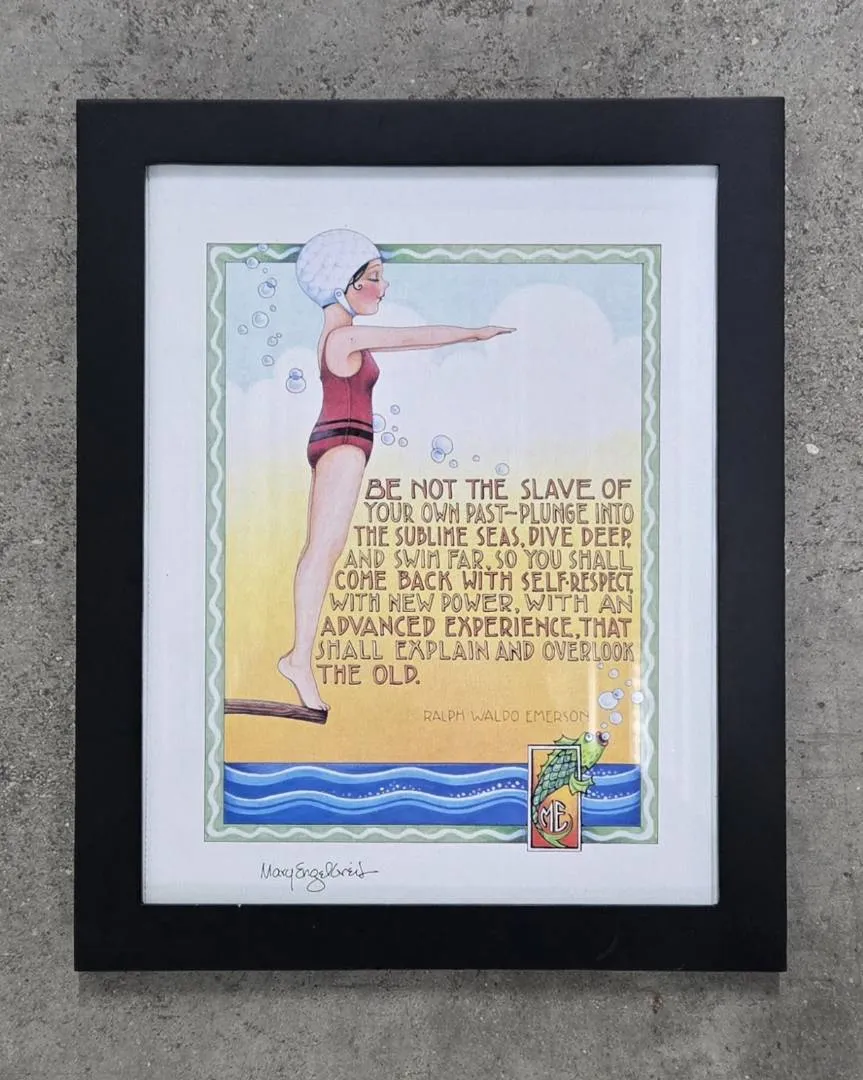 BE NOT THE SLAVE OF
YOUR OWN PAST~PLUNGE INTO
THE SUBLIME SEAS, DIVE DEEP,
AND SWIM FAR, SO YOU SHALL
COME BACK WITH SELF-RESPECT,
WITH NEW POWER, WITH AN
ADVANCED EXPERIENCE, THAT
SHALL EXPLAIN AND OVERLOOK
THE OLD.
RALPH WALDO EMERSON
ME
Mary Engelbreit